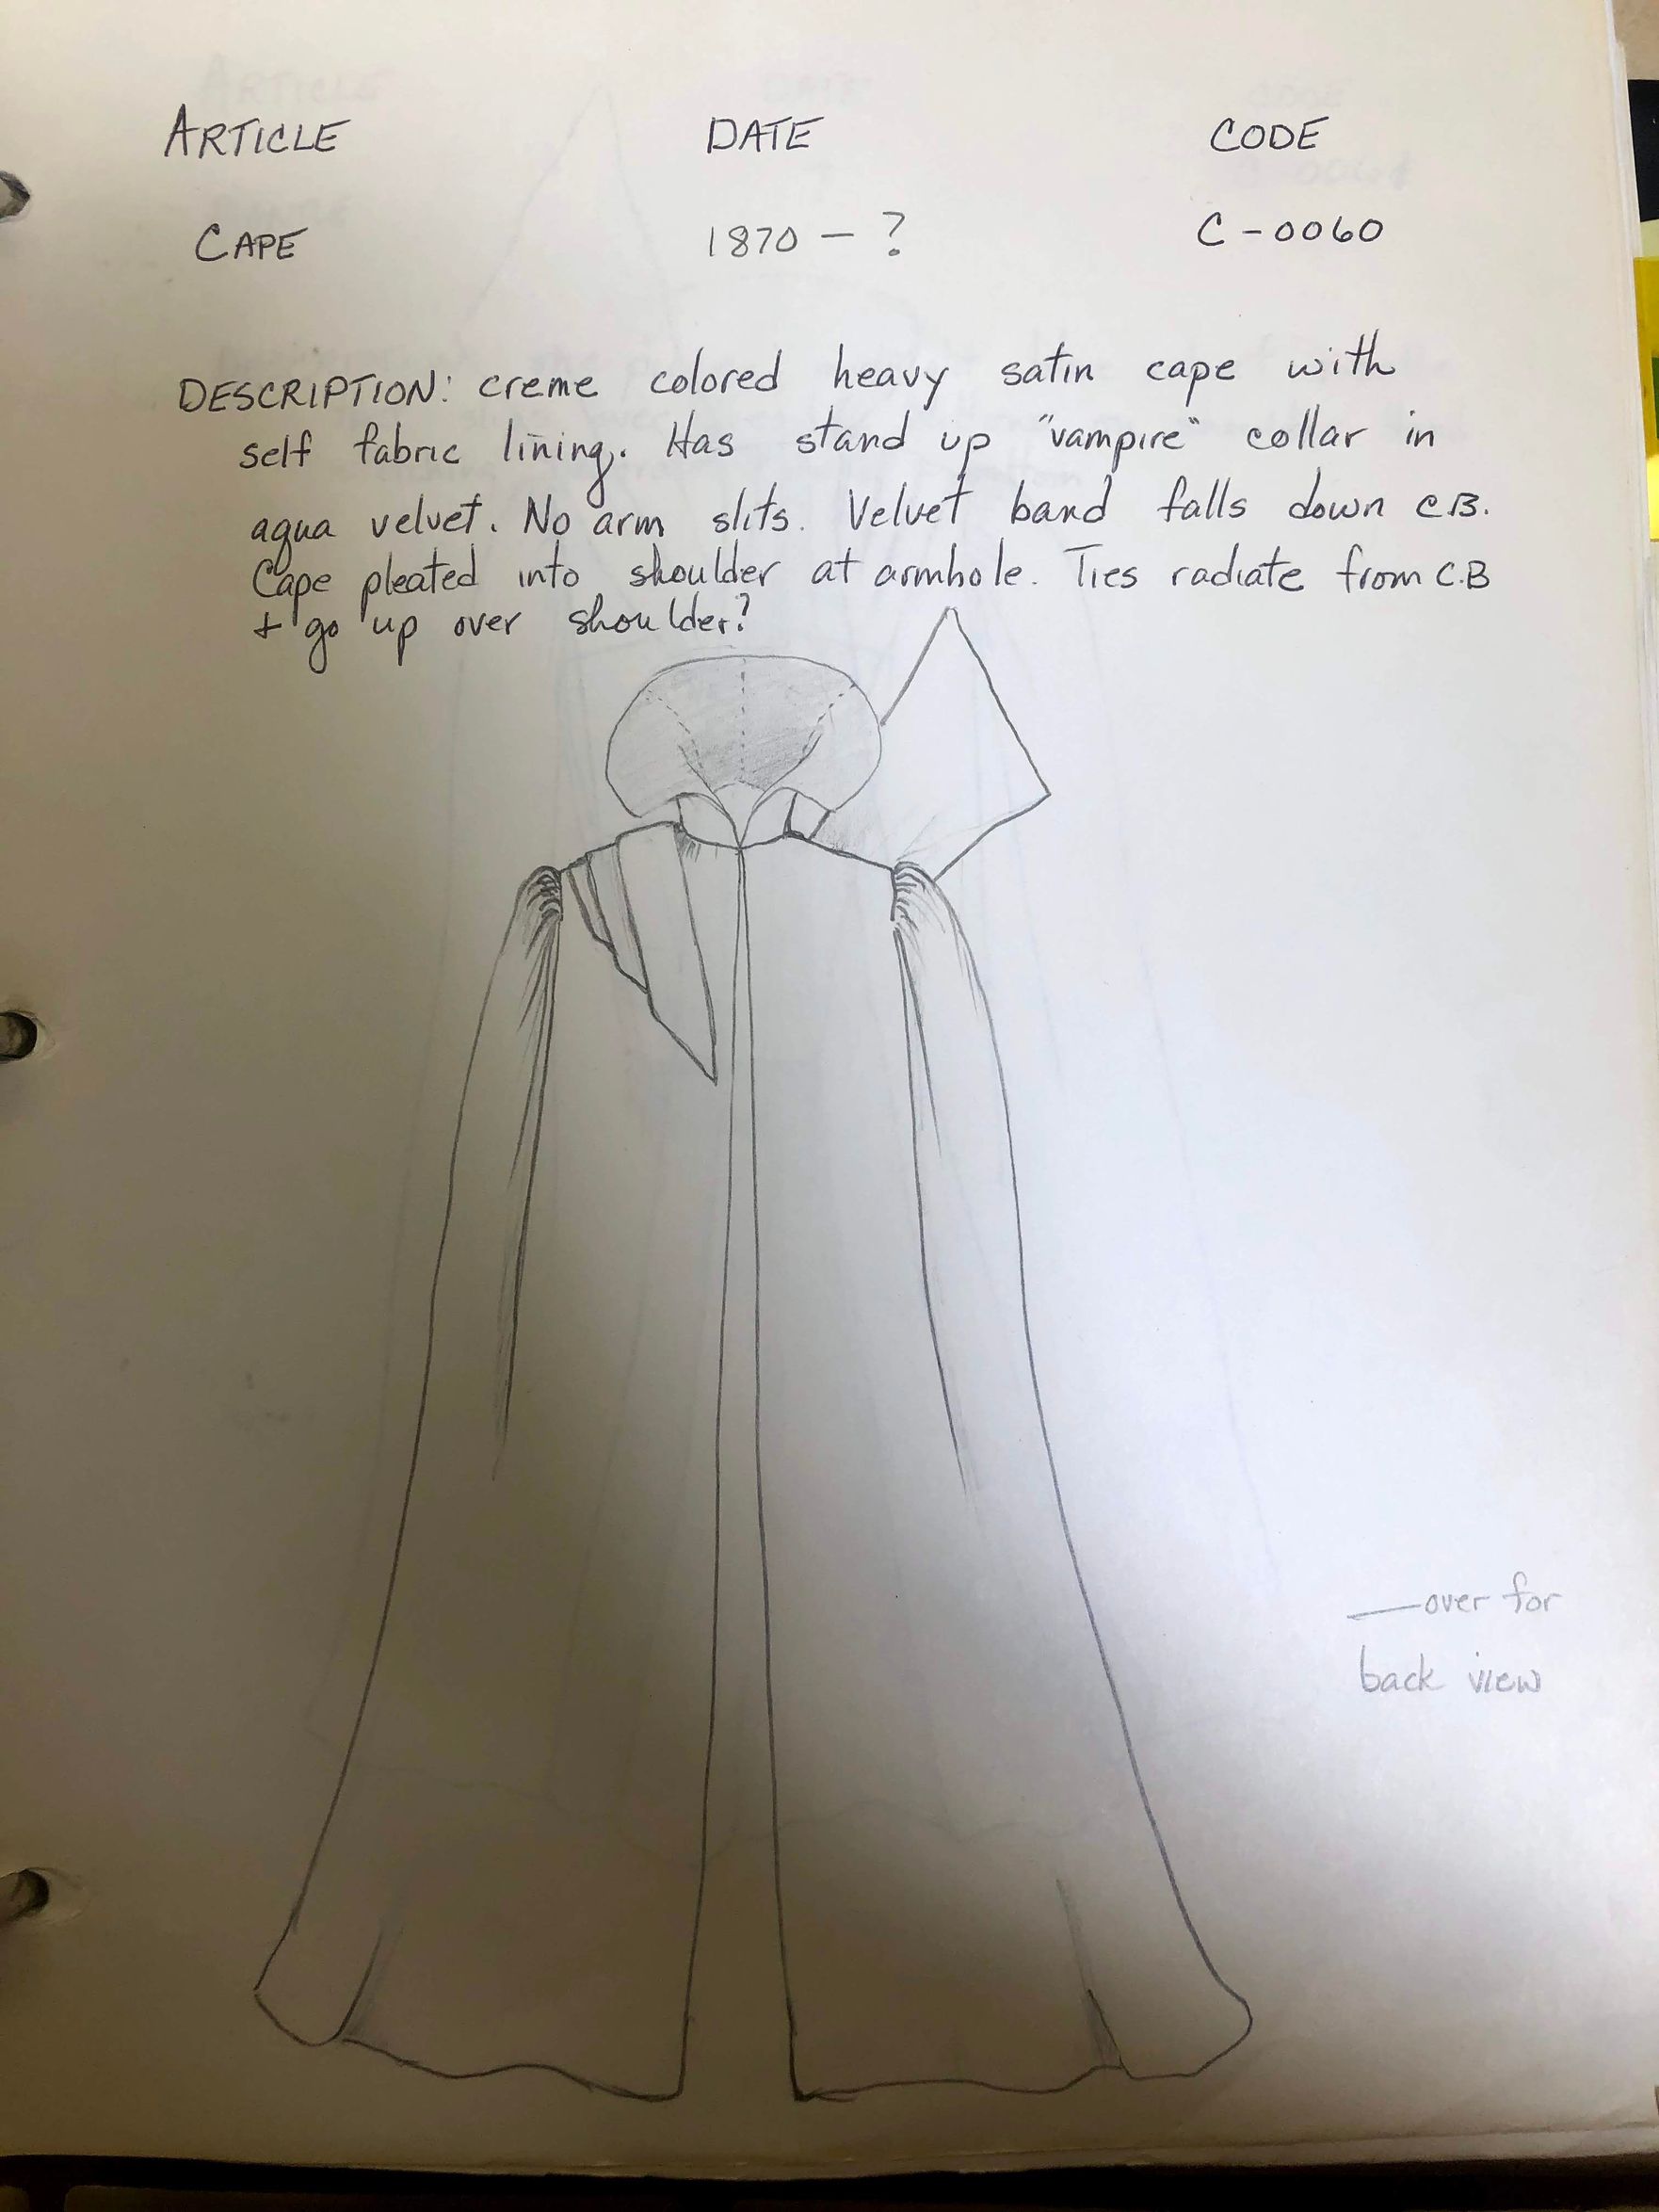 ARTICLE DATE CODE
CAPE 1870 – ? C-0060
DESCRIPTION: creme colored heavy satin cape with
self fabric lining. Has stand up "vampire" collar in
aqua velvet. No arm slits. Velvet band falls down C.B.
Cape pleated into shoulder at armhole. Ties radiate from C.B
+ go up over shoulder?
—over for
back view